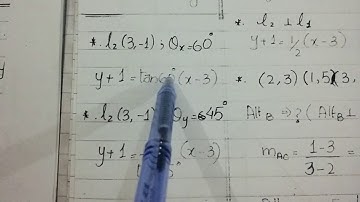 *. l₂(3,-1) ; θₓ=60°
y+1 = tan60°(x-3)
*. l₂(3,-1) θᵧ=45°
y+1 = (x-3)
*. l₂ ⊥ l₁
y+1 = 1/2 (x-3)
*. (2,3) (1,5) (3,
Alt_B ⇒ ? (Alt_B ⊥
m_AC = 1-3/3-2 =